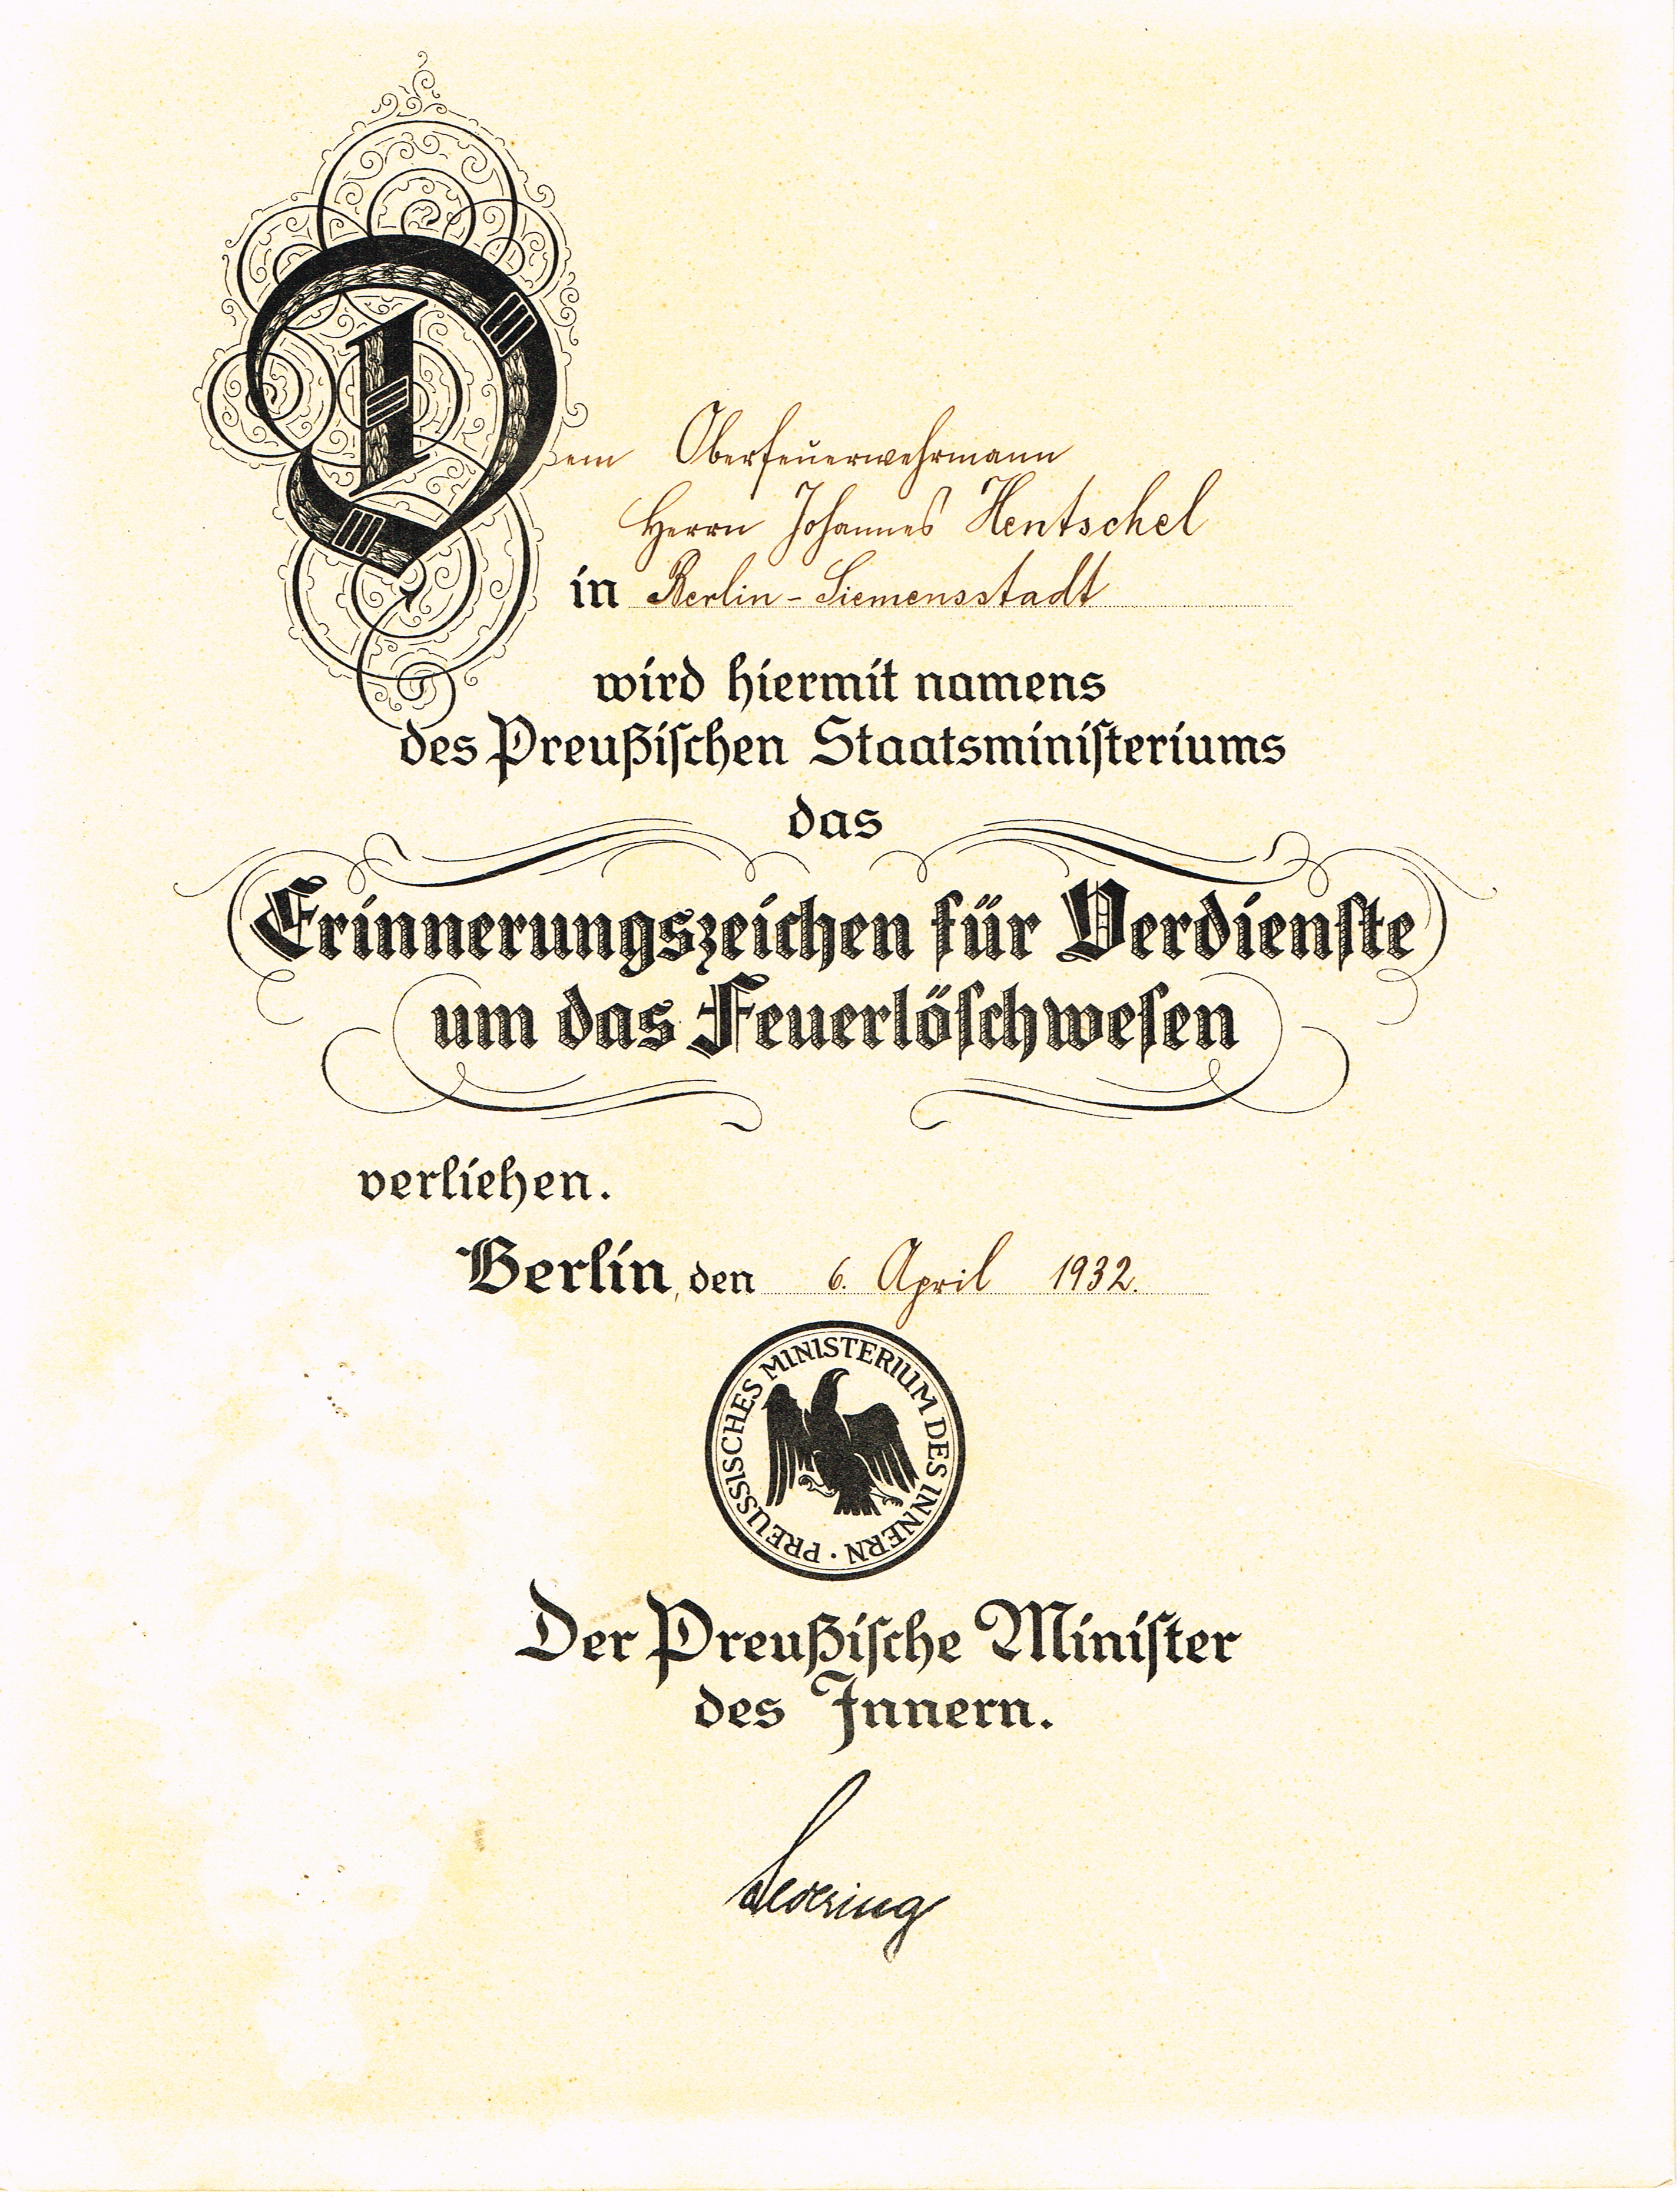 Dem Oberfeuerwehrmann
Herrn Johannes Hentschel
in Berlin-Siemensstadt
wird hiermit namens
des Preußiſchen Staatsminiſteriums
das
Erinnerungszeichen für Verdienſte
um das Feuerlöſchweſen
verliehen.
Berlin, den 6. April 1932.
PREUSSISCHES MINISTERIUM DES INNERN ·
Der Preußiſche Miniſter
des Innern.
Severing